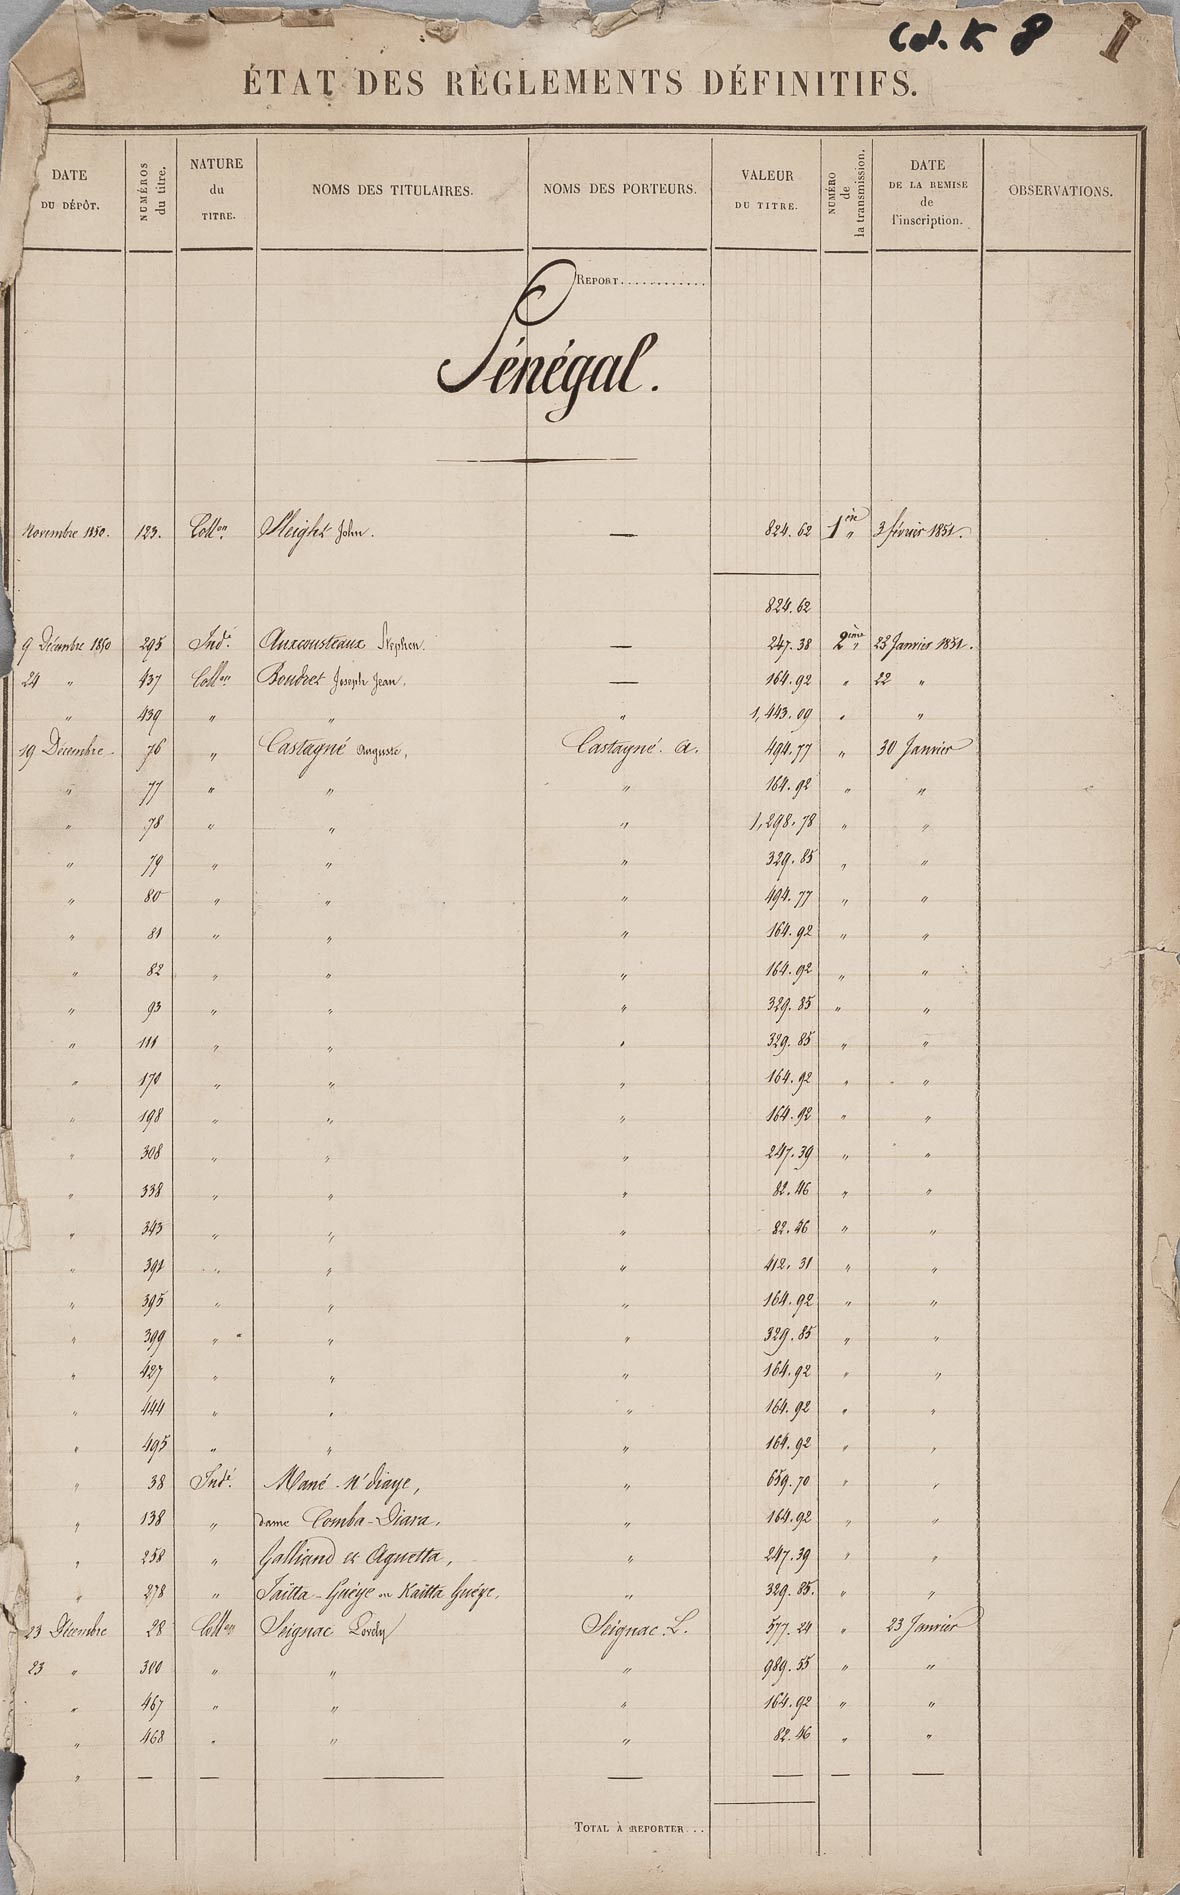 Col. K 8 I
ÉTAT DES RÈGLEMENTS DÉFINITIFS.
DATE DU DÉPÔT. NUMÉROS du titre. NATURE du TITRE. NOMS DES TITULAIRES. NOMS DES PORTEURS. VALEUR DU TITRE. NUMÉRO de la transmission. DATE DE LA REMISE de l'inscription. OBSERVATIONS.
REPORT............
Sénégal.
Novembre 1850. 123. Coll.on Sleight John. — 824.62 1ère " 3 février 1851.
824.62
9 Décembre 1850 295 Ind.é Auxcousteaux Stephen. — 247.38 2ème " 23 Janvier 1851.
24 " 437 Coll.on Boudret Joseph Jean. — 164.92 " 22 "
" 439 " " " 1,443.09 " "
19 Décembre. 76 " Castagné Auguste, Castagné. A. 494.77 " 30 Janvier
" 77 " " " 164.92 " "
" 78 " " " 1,298.78 " "
" 79 " " " 329.85 " "
" 80 " " " 494.77 " "
" 81 " " " 164.92 " "
" 82 " " " 164.92 " "
" 93 " " " 329.85 " "
" 111 " " " 329.85 " "
" 170 " " " 164.92 " "
" 198 " " " 164.92 " "
" 308 " " " 247.39 " "
" 338 " " " 82.46 " "
" 343 " " " 82.46 " "
" 391 " " " 412.31 " "
" 395 " " " 164.92 " "
" 399 " " " 329.85 " "
" 427 " " " 164.92 " "
" 444 " " " 164.92 " "
" 495 " " " 164.92 " "
" 38 Ind.é Mané-N'diaye, " 659.70 " "
" 138 " dame Comba-Diara. " 164.92 " "
" 258 " Galliand et Aguetta, " 247.39 " "
" 278 " Taïtta-Guéye ou Kaïtta Guéye. " 329.85. " "
23 Décembre 28 Coll.on Seignac Seignac. L. 577.24 " 23 Janvier
23 " 300 " " " 989.55 " "
" 467 " " " 164.92 " "
" 468 " " " 82.46 " "
" — — — — — — —
TOTAL À REPORTER...